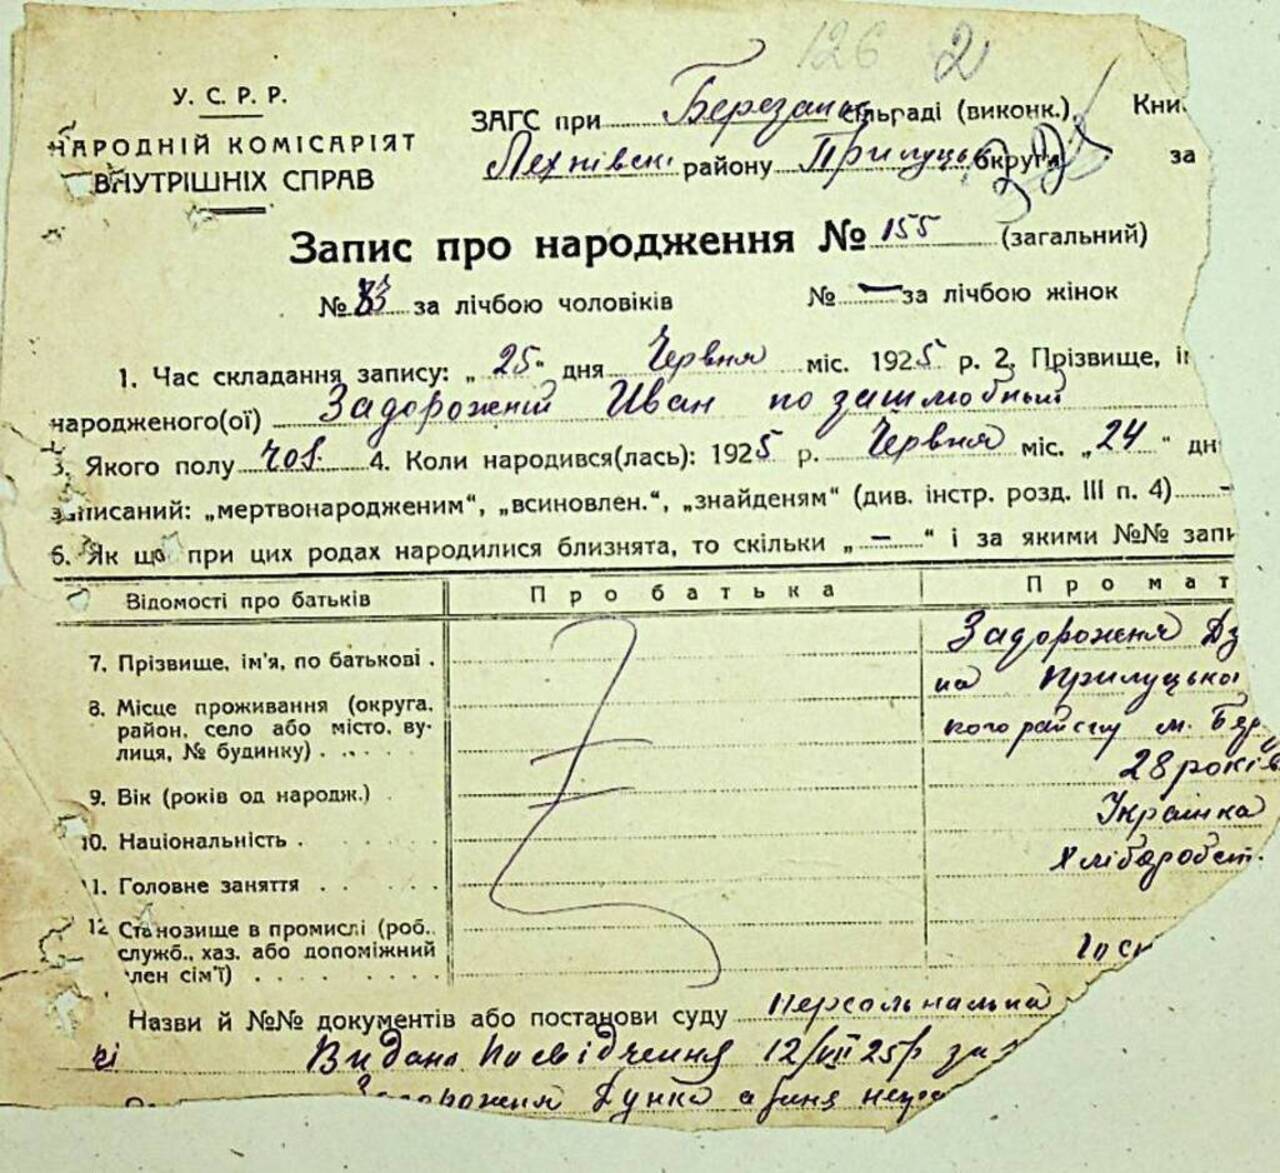 126 2
У. С. Р. Р.
НАРОДНІЙ КОМІСАРІЯТ
ВНУТРІШНІХ СПРАВ
ЗАГС при Березанськ сільраді (виконк.) Кни
Лехнівськ району Прилуцьк округи за
Запис про народження № 155 (загальний)
№ 83 за лічбою чоловіків № — за лічбою жінок
1. Час складання запису: „25“ дня Червня міс. 1925 р. 2. Прізвище, ім
народженого(ої) Задорожній Иван позашлюбный
3. Якого полу чол. 4. Коли народився(лась): 1925 р. Червня міс. „24“ дн
записаний: „мертвонародженим“, „всиновлен.“, „знайденям“ (див. інстр. розд. III п. 4) —
6. Як що при цих родах народилися близнята, то скільки „—“ і за якими №№ запи
Відомості про батьків Про батька Про мат
7. Прізвище, ім'я, по батькові . Задорожня
на Прилуцької
8. Місце проживання (округа, район, село або місто, вулиця, № будинку) . . кого району м.
9. Вік (років од народж.) 28 років
10. Національність . Українка
11. Головне заняття . . . Хлібороб
12 Становище в промислі (роб., служб., хаз. або допоміжний член сім'ї) . . .
Назви й №№ документів або постанови суду
Видана посвідчення 12/VII 25 р за
Задорожня Дунка